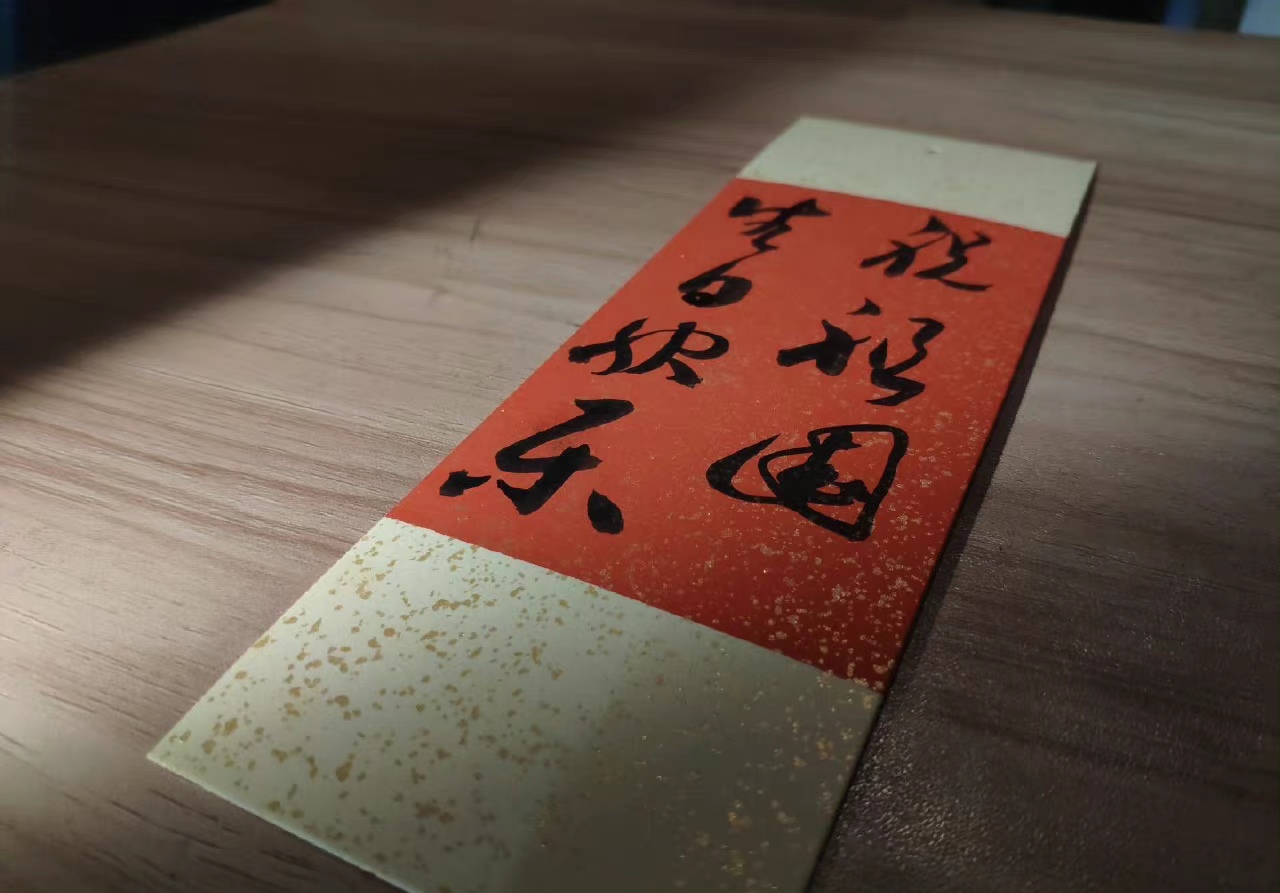 祝祖国
生日快乐